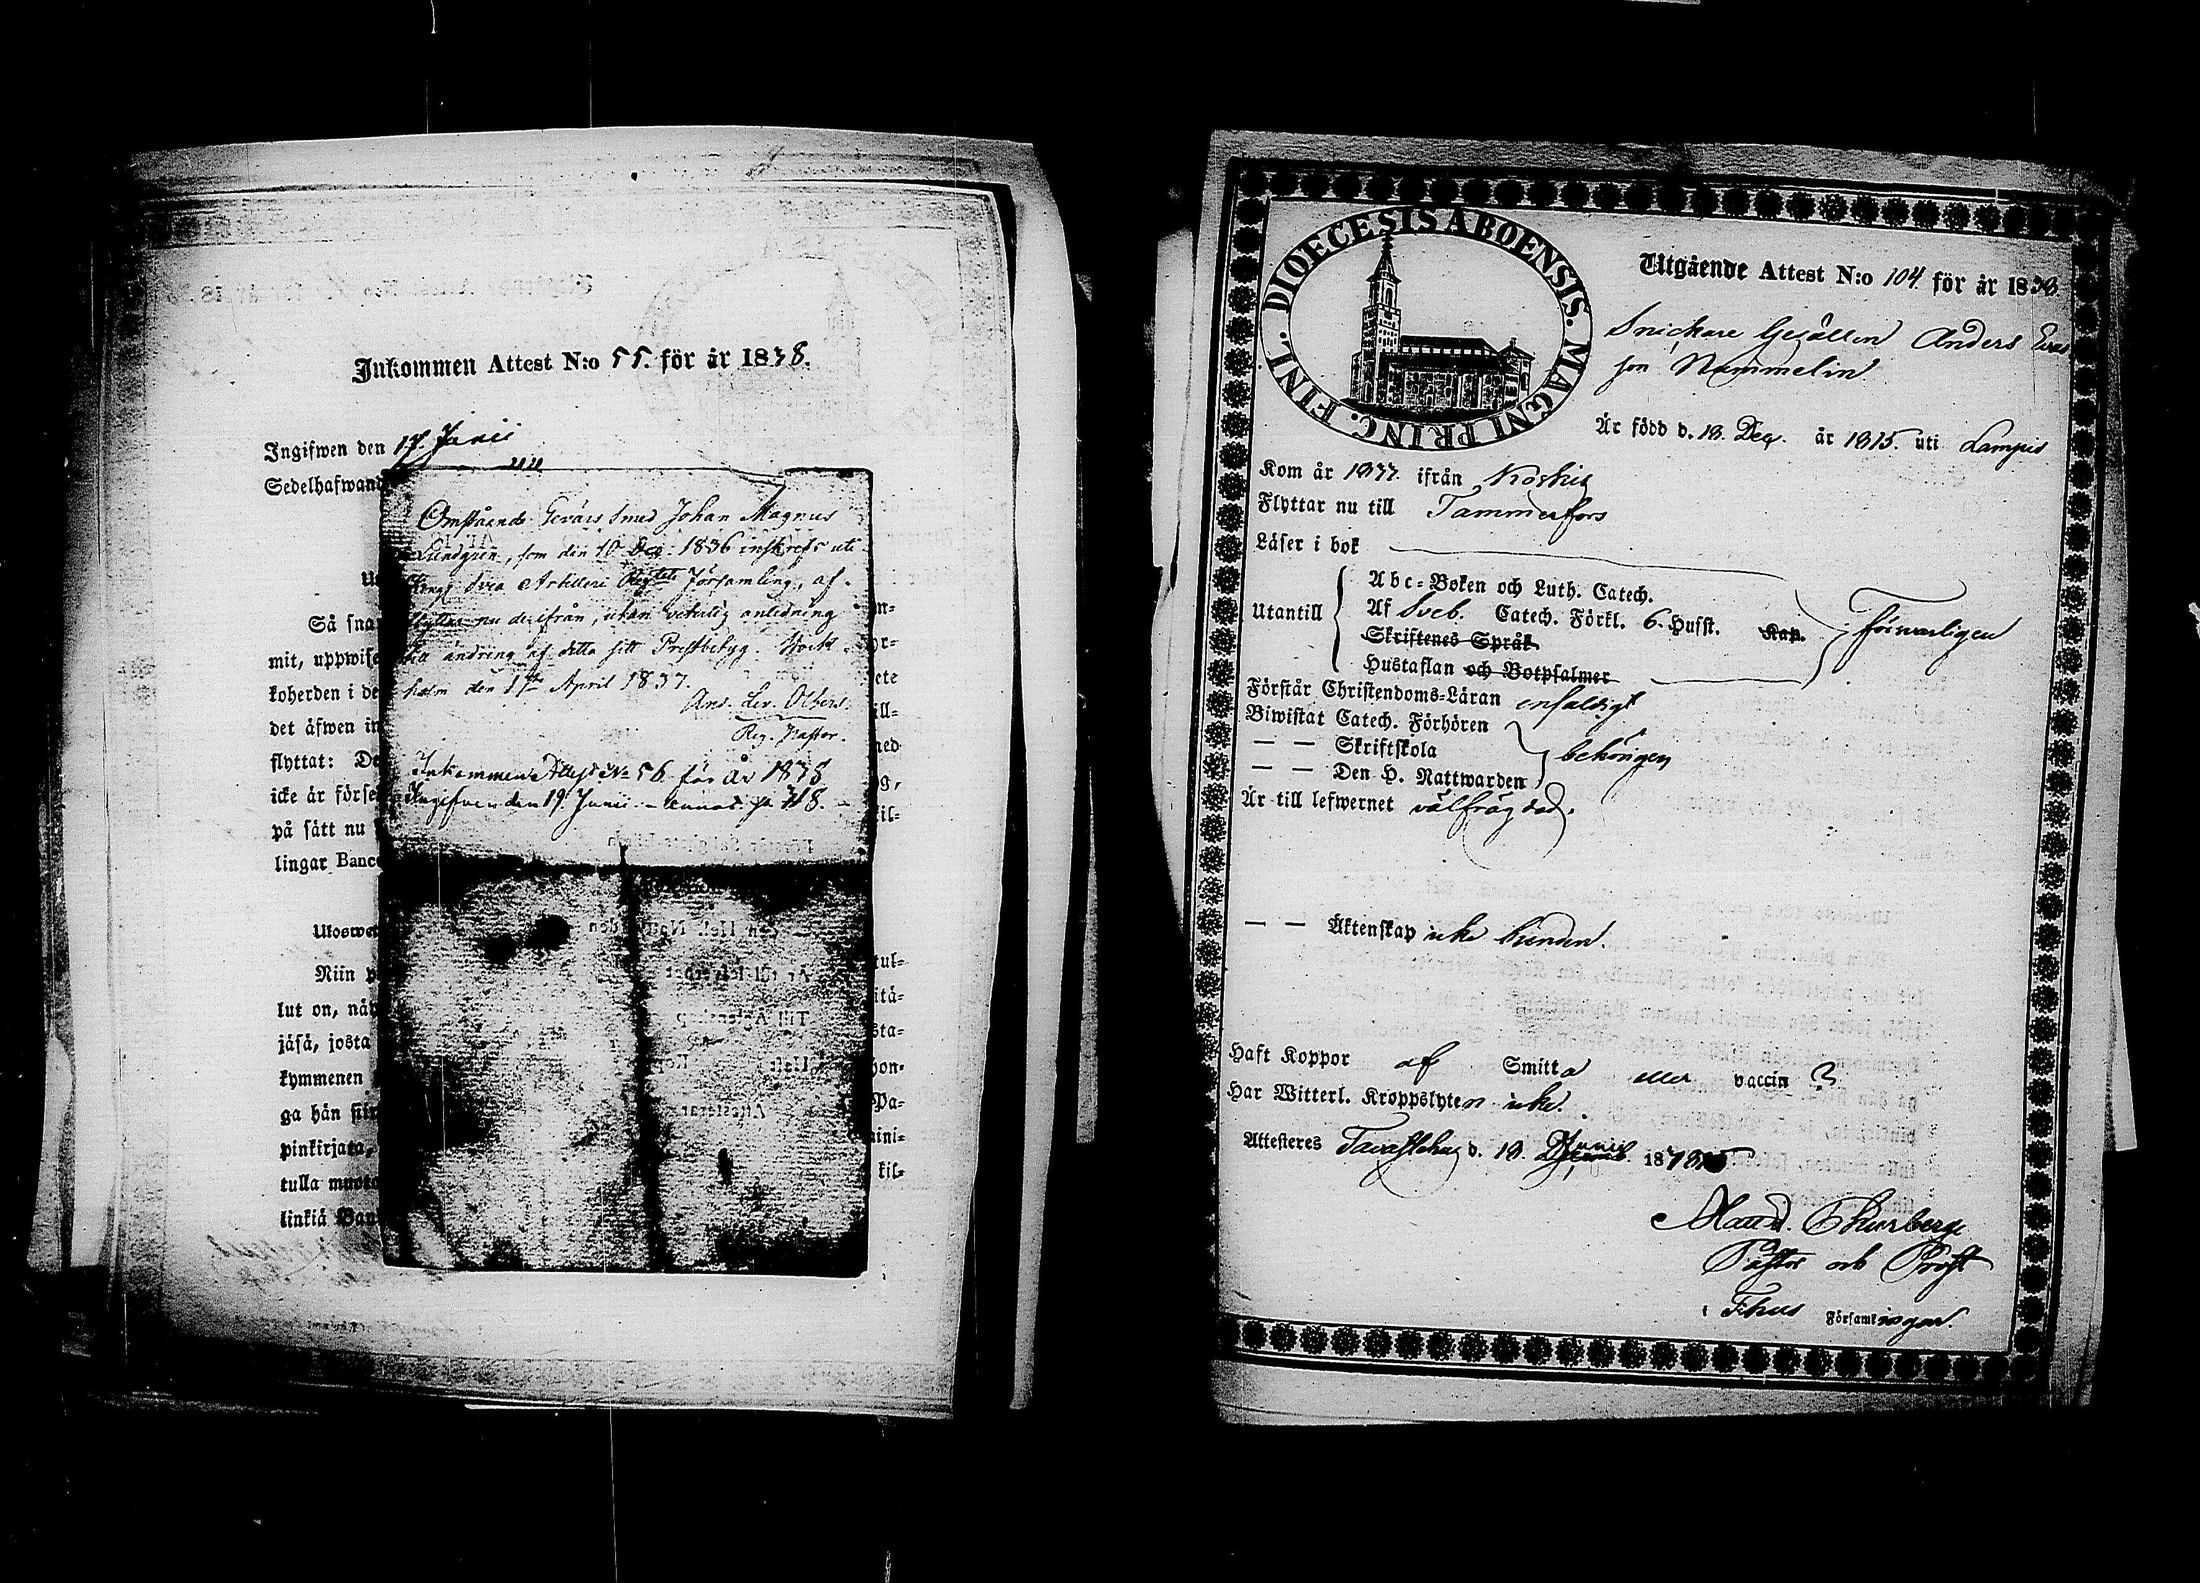 Inkommen Attest N:o 55. för år 1838.
Ingifwen den 17. Junii
Sedelhafwand
Omstående Gevärs Smed Johan Magnus
Lundgren, som den 10 Dec. 1836 inskrefs uti
Kongl Svea Artilleri Regtets Församling, af-
flyttar nu derifrån, utan veterlig anledning
till ändring af detta sitt Prestbetyg. Stock
holm den 17 April 1837.
Olbers.
Reg. Pastor.
Inkommen Attest No 56. för år 1838
Ingifven den 19. Junii
Så sna
mit, uppwise
koherden i de
det äfwen in
flyttat: De
icke är förse
på sätt nu
lingar Banco
Ulosw
Niin
lut on, nä
jäsä, josta
kymmenen
ga hän sii
pinkirjata,
tulla muoto
linkiä Ban
DIOECESIS ABOENSIS. MAGNI PRINC. FINL.
Utgående Attest N:o 104. för år 1838.
Snickare Gesällen Anders
son Nummelin
Är född d. 18. Dec. år 1815. uti Lampis
Kom år 1837. ifrån Koskis
Flyttar nu till Tammerfors
Läser i bok
Abc-Boken och Luth. Catech.
Utantill Af Sveb. Catech. Förkl. 6. Hufst. Kap. försvarligen
Skriftenes Språk
Hustaflan och Botpsalmer
Förstår Christendoms-Läran enfaldigt
Biwistat Catech. Förhören
— — Skriftskola behörigen
— — Den H. Nattwarden
Är till lefwernet välfrägdad.
— — Äktenskap icke bunden.
Haft Koppor af Smitta eller vaccin ?
Har Witterl. Kroppslyten icke.
Attesteres Tavastehus d. 18. Junii 18
Thurberg
Pastor och Prost
i T:hus Församlingar.